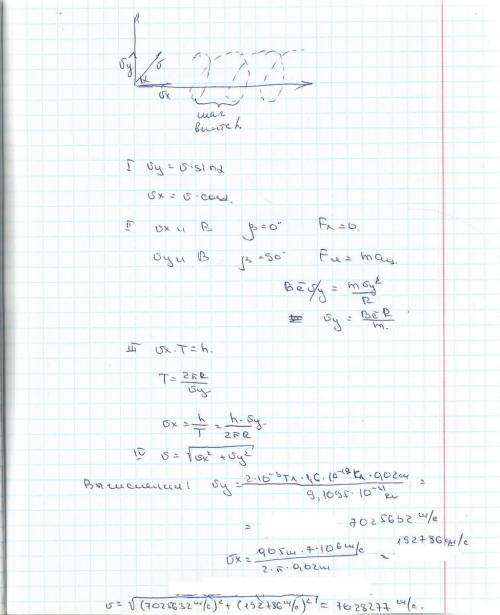 υy υ
α
υx
шаг
винта h
I υy = υ·sinα
υx = υ·cosα.
II υx и B β=0° Fл=0.
υy и B β=90° Fл = maц.
Bēυy = mυy²/R
υy = BēR/m.
III υx·T = h.
T = 2πR/υy
υx = h/T = h·υy/2πR
IV υ = √(υx² + υy²)
Вычисления: υy = 2·10⁻³Тл·1,6·10⁻¹⁹Кл·0,02м / 9,1095·10⁻³¹кг =
= 7025632 м/с
υx = 0,05м·7·106м/с / 2·π·0,02м = 192786 м/с
υ = √((7025632 м/с)² + (192786 м/с)²) = 7028277 м/с.